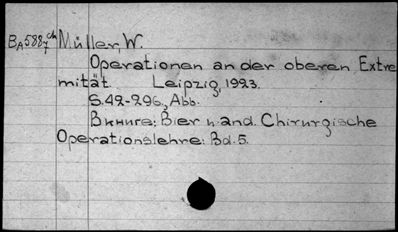 BA5887ch Müller, W.
Operationen an der oberen Extre
mität. Leipzig, 1923.
S. 42-296, Abb.
Вкниге: Bier u. and. Chirurgische
Operationslehre: Bd. 5.